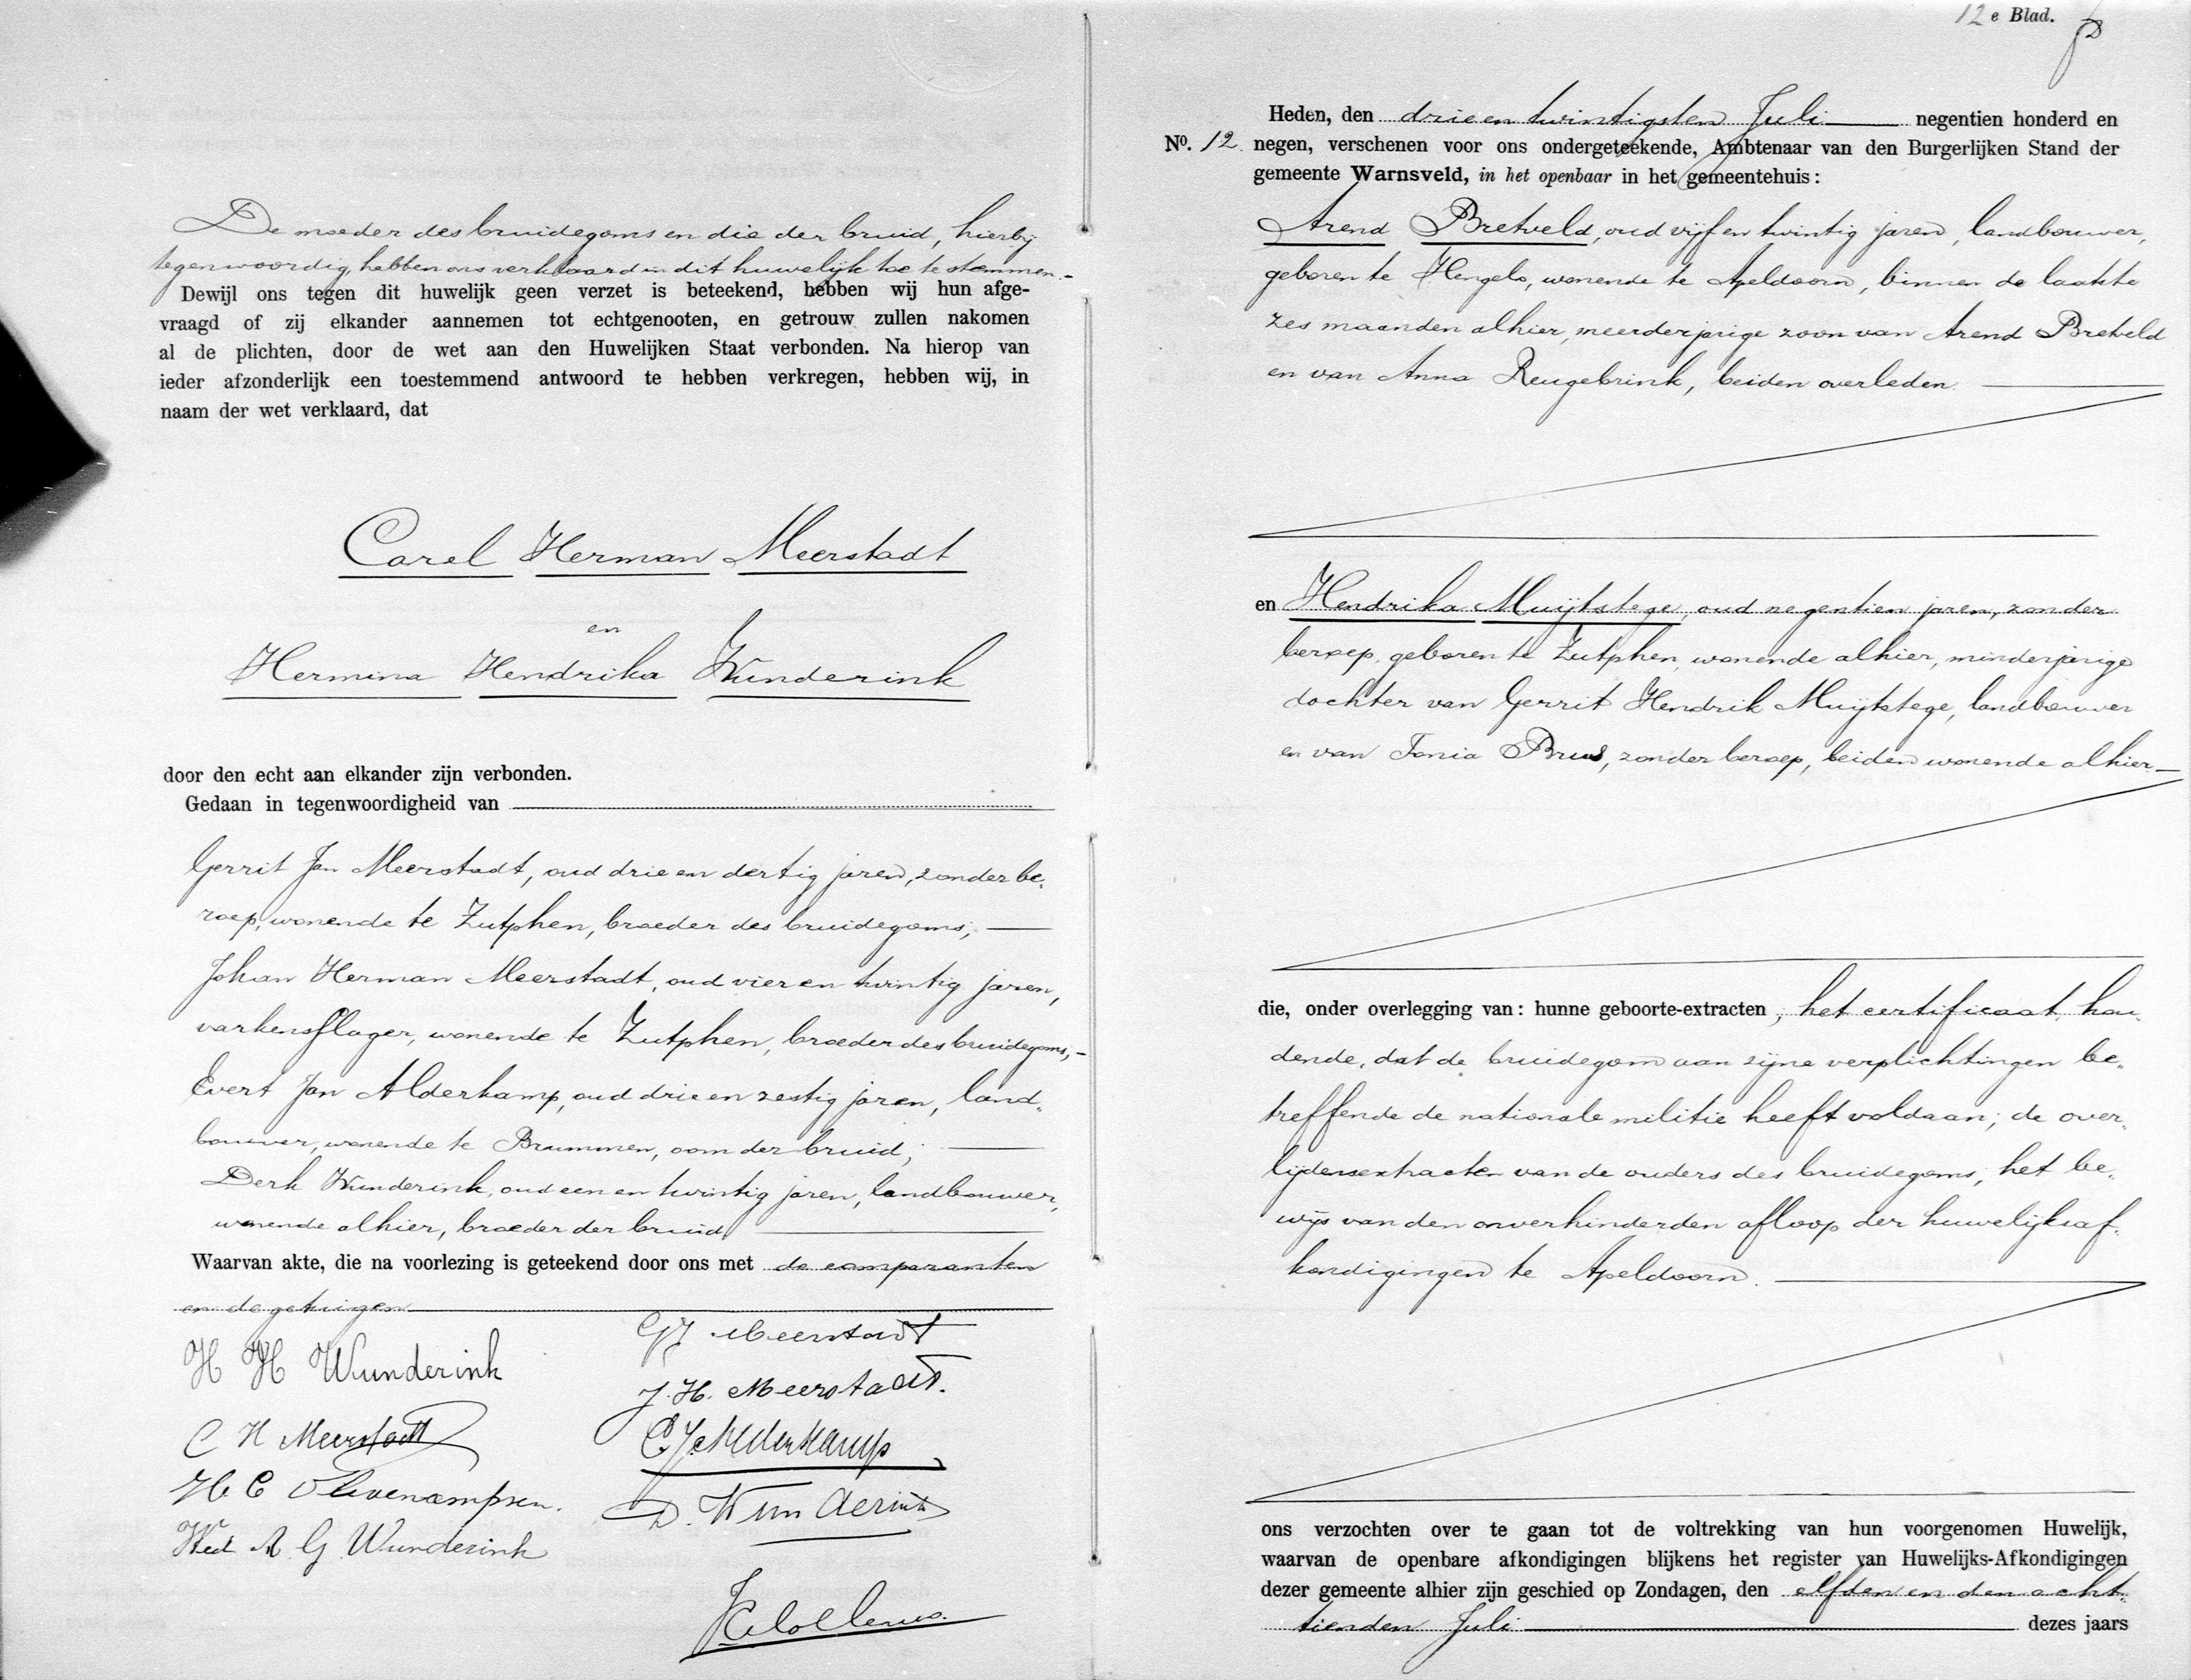 De moeder des bruidegoms en die der bruid, hierbij
tegenwoordig, hebben ons verklaard in dit huwelijk toe te stemmen.-
Dewijl ons tegen dit huwelijk geen verzet is beteekend, hebben wij hun afge-
vraagd of zij elkander aannemen tot echtgenooten, en getrouw zullen nakomen
al de plichten, door de wet aan den Huwelijken Staat verbonden. Na hierop van
ieder afzonderlijk een toestemmend antwoord te hebben verkregen, hebben wij, in
naam der wet verklaard, dat
Carel Herman Meerstadt
en
Hermina Hendrika Wunderink
door den echt aan elkander zijn verbonden.
Gedaan in tegenwoordigheid van
Gerrit Jan Meerstadt, oud drie en dertig jaren, zonder be-
roep, wonende te Zutphen, broeder des bruidegoms;
Johan Herman Meerstadt, oud vier en twintig jaren,
varkensslager, wonende te Zutphen, broeder des bruidegoms,-
Evert Jan Alderkamp, oud drie en zestig jaren, land-
bouwer, wonende te Brummen, oom der bruid;
Derk Wunderink, oud een en twintig jaren, landbouwer,
wonende alhier, broeder der bruid
Waarvan akte, die na voorlezing is geteekend door ons met de comparanten
en de getuigen
H H Wunderink
C H Meerstadt
Wed A G Wunderink
GJ Meerstadt
J. H. Meerstadt.
E J Alderkamp
D. Wunderink
12e Blad.
No. 12
Heden, den drie en twintigsten Juli negentien honderd en
negen, verschenen voor ons ondergeteekende, Ambtenaar van den Burgerlijken Stand der
gemeente Warnsveld, in het openbaar in het gemeentehuis:
Arend Bretveld, oud vijf en twintig jaren, landbouwer,
geboren te Hengelo, wonende te Apeldoorn, binnen de laatste
zes maanden alhier, meerderjarige zoon van Arend Bretveld
en van Anna Reugebrink, beiden overleden.
en Hendrika Muijtstege, oud negentien jaren, zonder
beroep, geboren te Zutphen, wonende alhier, minderjarige
dochter van Gerrit Hendrik Muijtstege, landbouwer
en van Tonia Bruil, zonder beroep, beiden wonende alhier
die, onder overlegging van: hunne geboorte-extracten, het certificaat, hou-
dende, dat de bruidegom aan zijne verplichtingen be-
treffende de nationale militie heeft voldaan; de over-
lijdensextracten van de ouders des bruidegoms, het be-
wijs van den onverhinderden afloop der huwelijksaf-
kondigingen te Apeldoorn.
ons verzochten over te gaan tot de voltrekking van hun voorgenomen Huwelijk,
waarvan de openbare afkondigingen blijkens het register van Huwelijks-Afkondigingen
dezer gemeente alhier zijn geschied op Zondagen, den elfden en den acht-
tienden Juli dezes jaars